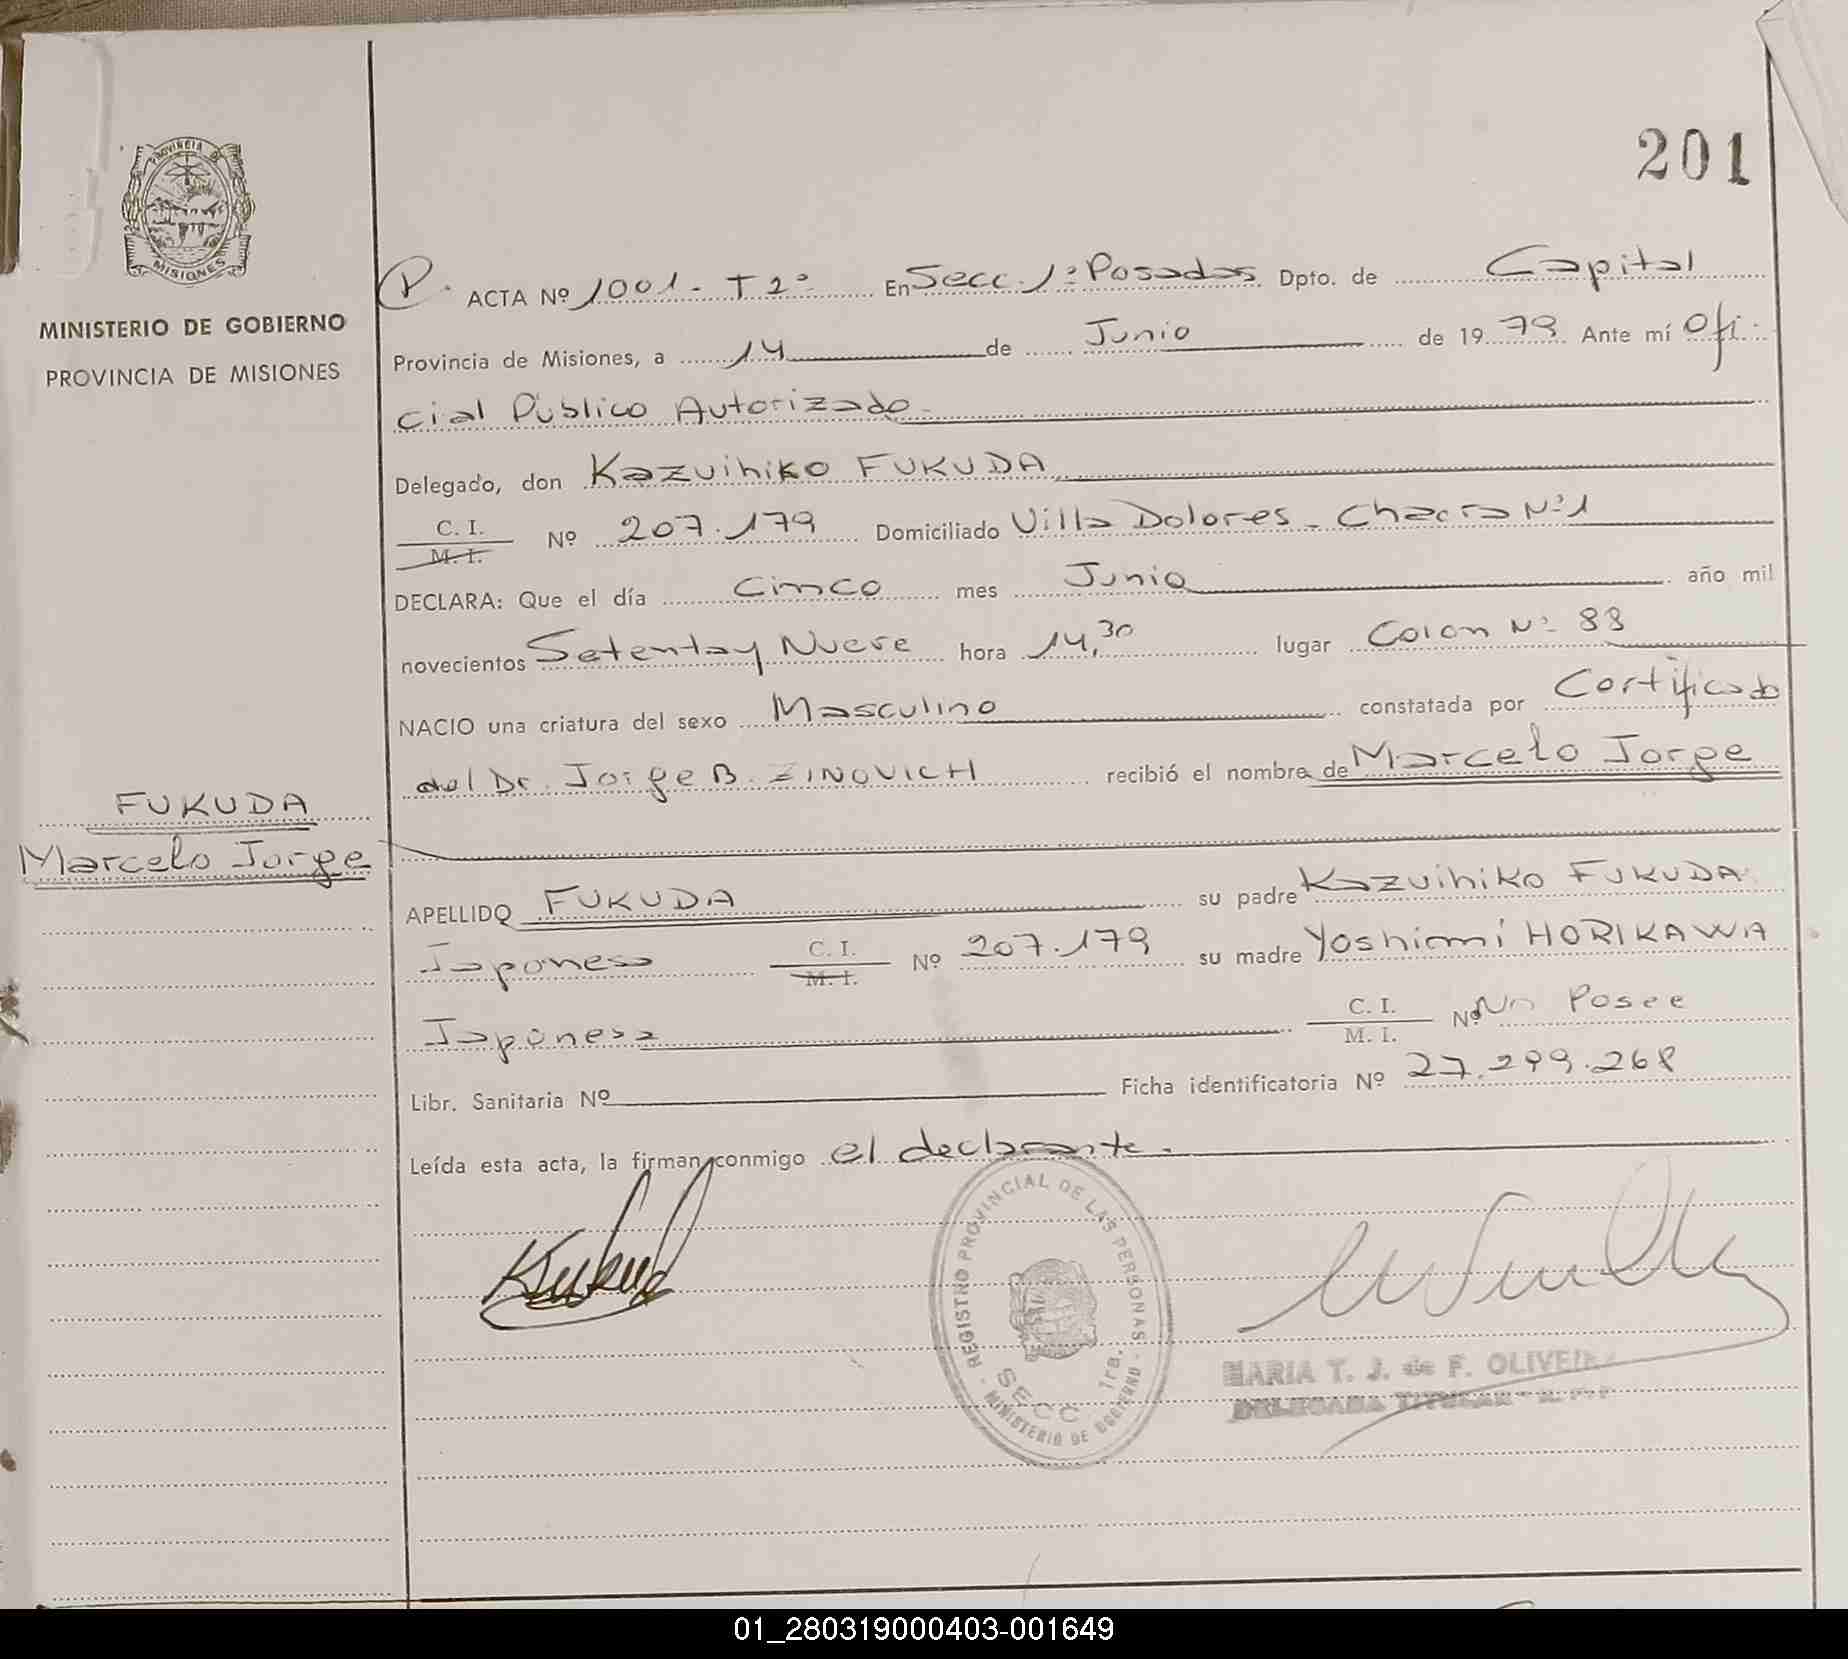 201
PROVINCIA DE
MISIONES
MINISTERIO DE GOBIERNO
PROVINCIA DE MISIONES
FUKUDA
Marcelo Jorge
P. ACTA Nº 1001 - T 2º En Secc. 1º Posadas Dpto. de Capital
Provincia de Misiones, a 14 de Junio de 1979 Ante mí Ofi-
cial Público Autorizado.
Delegado, don Kazuihiko FUKUDA
C. I.
M. I. Nº 207.179 Domiciliado Villa Dolores - Chacra Nº 1
DECLARA: Que el día Cinco mes Junio año mil
novecientos Setenta y Nueve hora 14,30 lugar Colon Nº 83
NACIO una criatura del sexo Masculino constatada por Certificado
del Dr. Jorge B. ZINOVICH recibió el nombre de Marcelo Jorge
APELLIDO FUKUDA su padre Kazuihiko FUKUDA
Japonesa C. I. M. I. Nº 207.179 su madre Yoshimi HORIKAWA
Japonesa C. I. M. I. Nº No Posee
Libr. Sanitaria Nº Ficha identificatoria Nº 27.299.268
Leída esta acta, la firman conmigo el declarante.
KFukuda
REGISTRO PROVINCIAL DE LAS PERSONAS
SECC 1ra.
MINISTERIO DE GOBIERNO
MARIA T. J. de F. OLIVEIRA
DELEGADA TITULAR
01_280319000403-001649